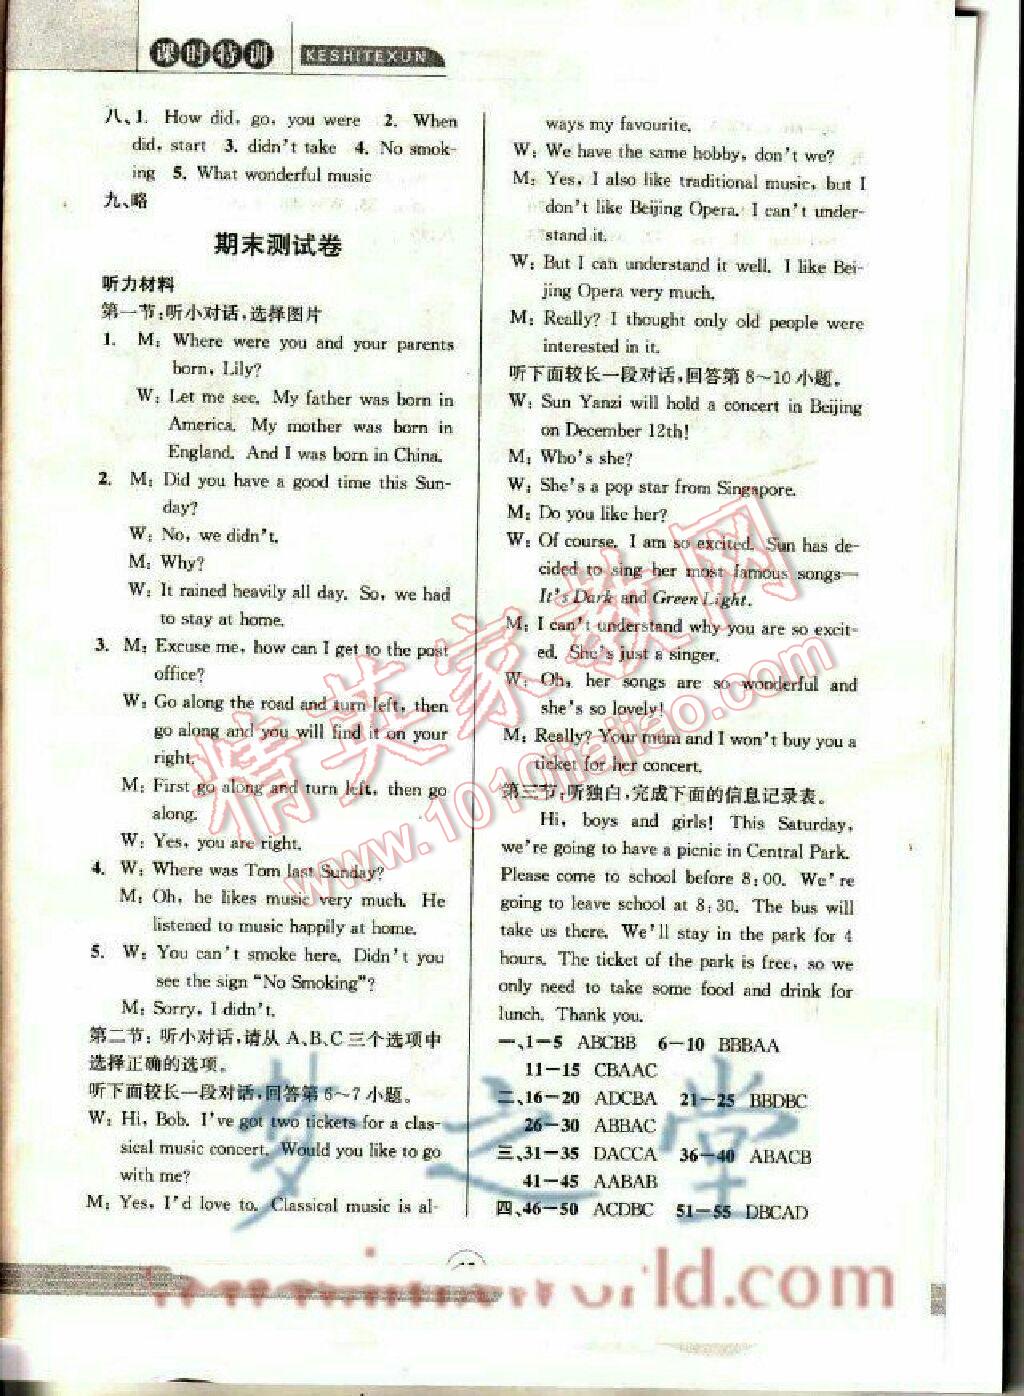 课时特训 KESHITEXUN
八、1. How did, go, you were 2. When
did, start 3. didn't take 4. No smok-
ing 5. What wonderful music
九、略
期末测试卷
听力材料
第一节:听小对话,选择图片
1. M: Where were you and your parents
born, Lily?
W: Let me see. My father was born in
America. My mother was born in
England. And I was born in China.
2. M: Did you have a good time this Sun-
day?
W: No, we didn't.
M: Why?
W: It rained heavily all day. So, we had
to stay at home.
3. M: Excuse me, how can I get to the post
office?
W: Go along the road and turn left, then
go along and you will find it on your
right.
M: First go along and turn left, then go
along.
W: Yes, you are right.
4. W: Where was Tom last Sunday?
M: Oh, he likes music very much. He
listened to music happily at home.
5. W: You can't smoke here. Didn't you
see the sign "No Smoking"?
M: Sorry, I didn't.
第二节:听小对话,请从 A、B、C 三个选项中
选择正确的选项。
听下面较长一段对话,回答第 6~7 小题。
W: Hi, Bob. I've got two tickets for a clas-
sical music concert. Would you like to go
with me?
M: Yes, I'd love to. Classical music is al-
ways my favourite.
W: We have the same hobby, don't we?
M: Yes, I also like traditional music, but I
don't like Beijing Opera. I can't under-
stand it.
W: But I can understand it well. I like Bei-
jing Opera very much.
M: Really? I thought only old people were
interested in it.
听下面较长一段对话,回答第 8~10 小题。
W: Sun Yanzi will hold a concert in Beijing
on December 12th!
M: Who's she?
W: She's a pop star from Singapore.
M: Do you like her?
W: Of course. I am so excited. Sun has de-
cided to sing her most famous songs—
It's Dark and Green Light.
M: I can't understand why you are so excit-
ed. She's just a singer.
W: Oh, her songs are so wonderful and
she's so lovely!
M: Really? Your mum and I won't buy you a
ticket for her concert.
第三节:听独白,完成下面的信息记录表。
Hi, boys and girls! This Saturday,
we're going to have a picnic in Central Park.
Please come to school before 8:00. We're
going to leave school at 8:30. The bus will
take us there. We'll stay in the park for 4
hours. The ticket of the park is free, so we
only need to take some food and drink for
lunch. Thank you.
一、1-5 ABCBB 6-10 BBBAA
11-15 CBAAC
二、16-20 ADCBA 21-25 BBDBC
26-30 ABBAC
三、31-35 DACCA 36-40 ABACB
41-45 AABAB
四、46-50 ACDBC 51-55 DBCAD
精英家教网
www.1010jiajiao.com
梦之堂